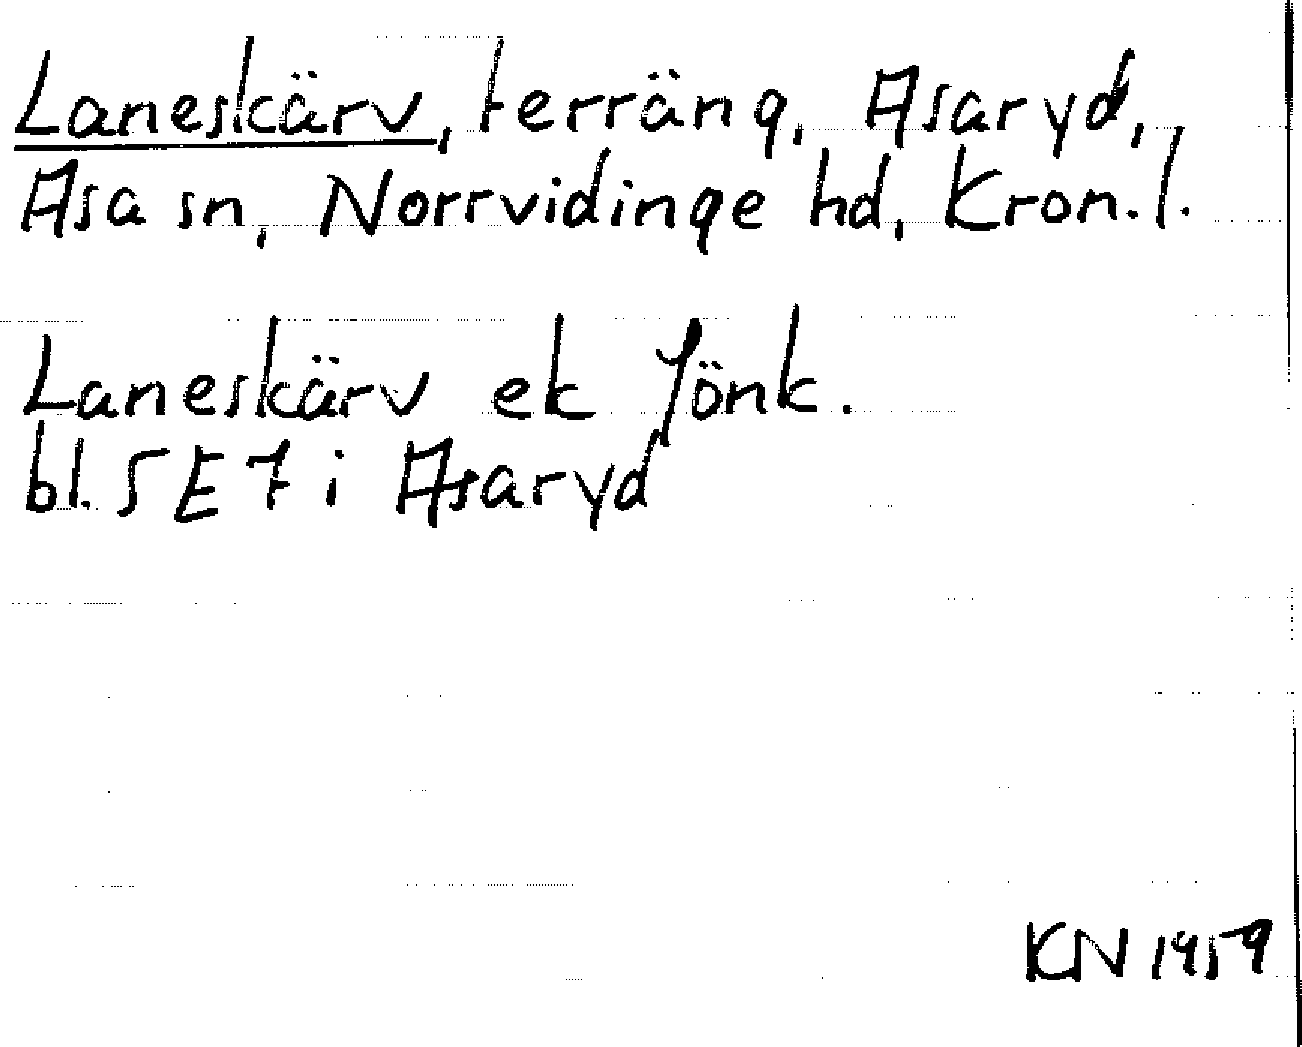 Laneskärv, terräng, Asaryd,
Asa sn, Norrvidinge hd, Kron. l.
Laneskärv ek Jönk.
bl. 5 E 7 i Asaryd
KN 1959